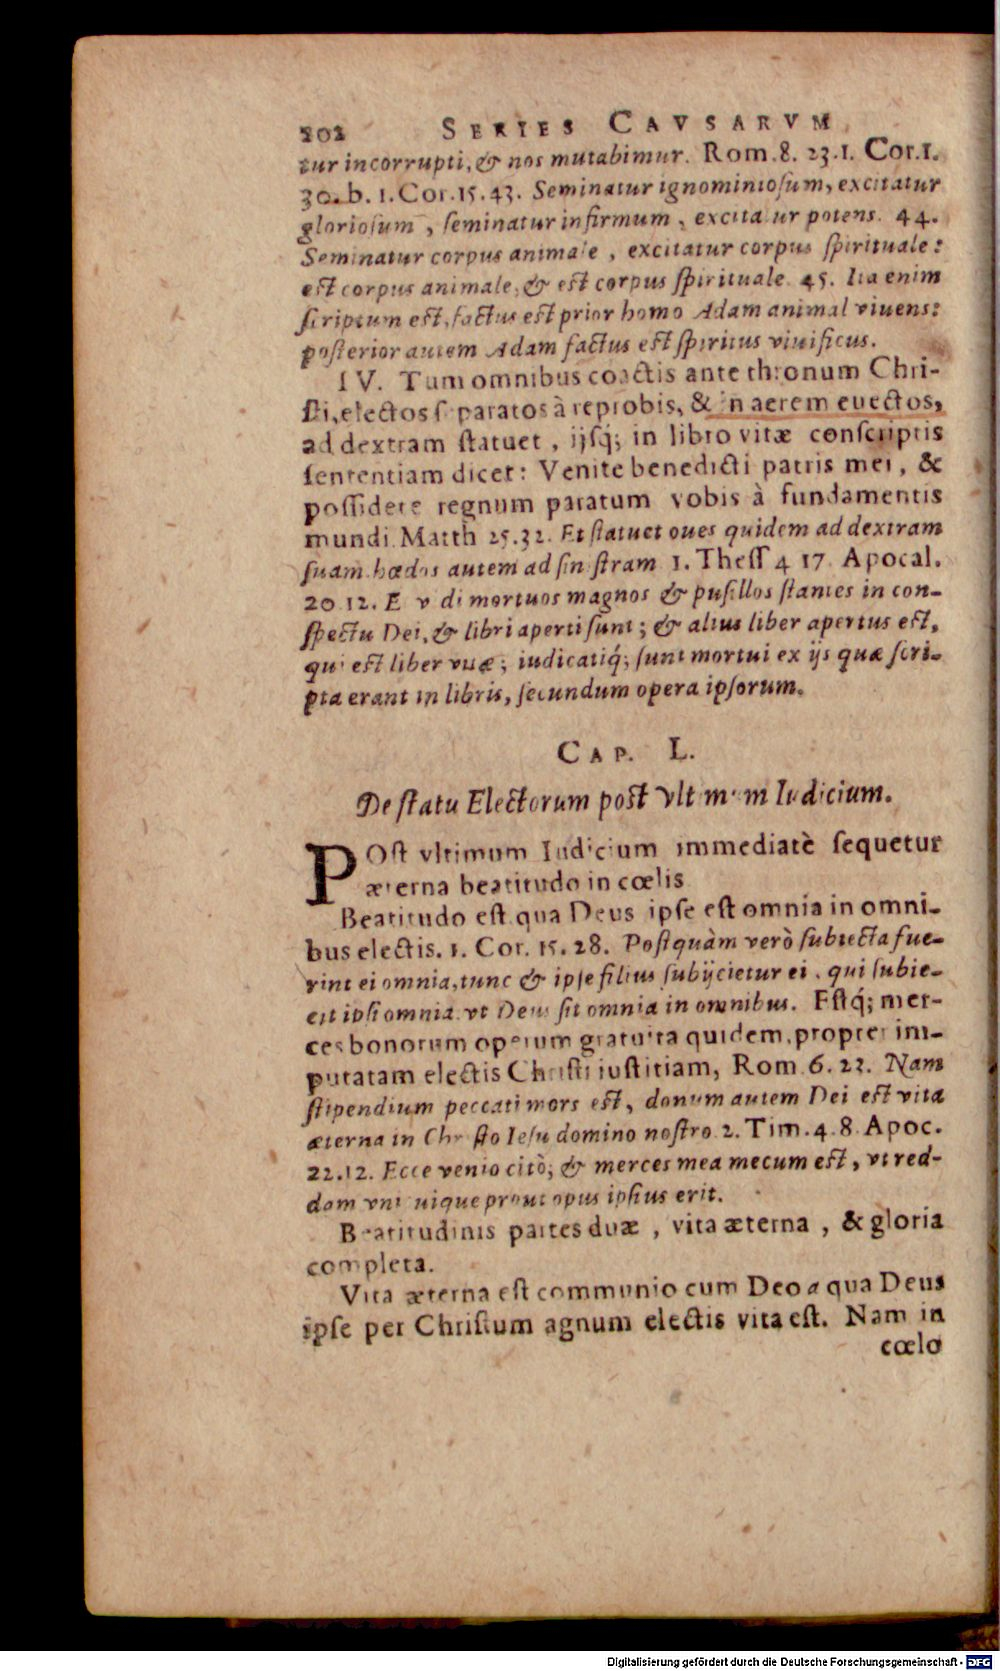 202 SERIES CAVSARVM
tur incorrupti, & nos mutabimur. Rom. 8. 23. 1. Cor. 1.
30. b. 1. Cor. 15. 43. Seminatur ignominiosum, excitatur
gloriosum, seminatur infirmum, excitatur potens. 44.
Seminatur corpus animale, excitatur corpus spirituale:
est corpus animale, & est corpus spirituale. 45. Ita enim
scriptum est, factus est prior homo Adam animal viuens:
posterior autem Adam factus est spiritus viuificus.
IV. Tum omnibus coactis ante thronum Chri-
sti, electos separatos à reprobis, & in aerem euectos,
ad dextram statuet, ijsq́; in libro vitæ conscriptis
sententiam dicet: Venite benedicti patris mei, &
possidete regnum paratum vobis à fundamentis
mundi. Matth 25. 32. Et statuet oues quidem ad dextram
suam hœdos autem ad sinistram 1. Thess 4 17. Apocal.
20. 12. Et vidi mortuos magnos & pusillos stantes in con-
spectu Dei, & libri aperti sunt; & alius liber apertus est,
qui est liber vitæ; iudicatiq́; sunt mortui ex ijs quæ scri-
pta erant in libris, secundum opera ipsorum.
CAP. L.
De statu Electorum post vltimum Iudicium.
POst vltimum Iudicium immediatè sequetur
æterna beatitudo in cœlis
Beatitudo est qua Deus ipse est omnia in omni-
bus electis. 1. Cor. 15. 28. Postquàm verò subiecta fue-
rint ei omnia, tunc & ipse filius subijcietur ei, qui subie-
cit ipsi omnia, vt Deus sit omnia in omnibus. Estq́; mer-
ces bonorum operum gratuita quidem, propter im-
putatam electis Christi iustitiam, Rom. 6. 23. Nam
stipendium peccati mors est, donum autem Dei est vita
æterna in Christo Iesu domino nostro. 2. Tim. 4. 8. Apoc.
22. 12. Ecce venio citò; & merces mea mecum est, vt red-
dam vnicuique prout opus ipsius erit.
Beatitudinis partes duæ, vita æterna, & gloria
completa.
Vita æterna est communio cum Deo a qua Deus
ipse per Christum agnum electis vita est. Nam in
cœlo
Digitalisierung gefördert durch die Deutsche Forschungsgemeinschaft - DFG